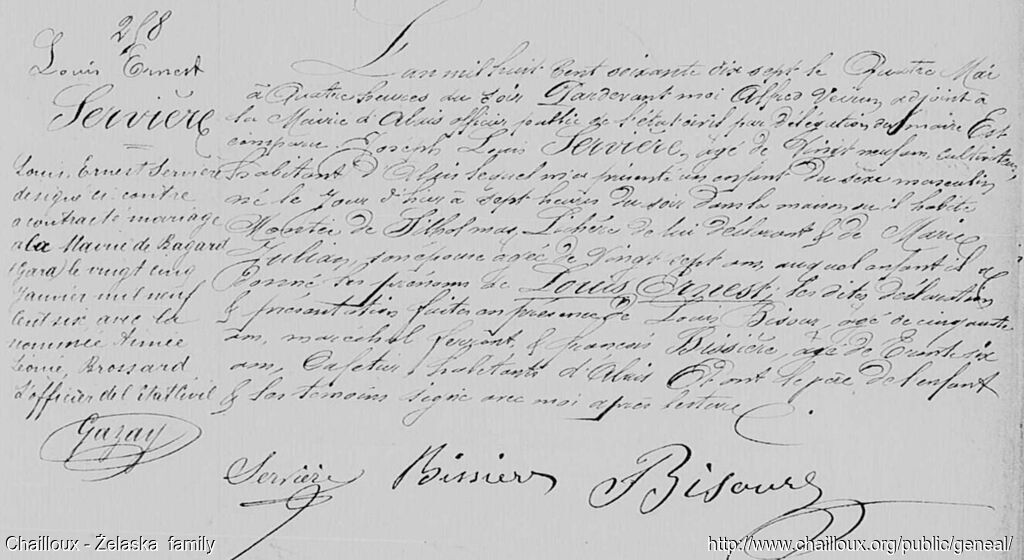 258
Louis Ernest
Servière
Louis, Ernest Servière
désigné ci contre
a contracté mariage
à la Mairie de Bagard
(Gard) le vingt cinq
Janvier mil neuf
cent six avec la
nommée Aimée
Léonie, Brossard
L'officier de l'Etat Civil
Gazay
L'an mil huit cent soixante dix sept le Quatre Mai
à Quatre heures du soir Pardevant moi Alfred Veirun adjoint à
la Mairie d'Alais officier public de l'état civil par délégation du maire Est
comparu Joseph Louis Servière, agé de Vingt neuf an, Cultivateur,
habitant d'Alais lequel m'a présenté un enfant du sèxe masculin
né le Jour d'hier à sept heures du soir dans la maison où il habite
Montée de Silhol mas, de lui déclarant & de Marie
Julian, son épouse agée de Vingt sept ans, auquel enfant il a
donné les prénoms de Louis Ernest; les dites déclaration
& présentation faites en présence de Louis Bisour, agé de cinquante
an, maréchal ferrant & français Bissière, agé de Trente six
an, Cafetier habitants d'Alais Et ont le père de l'enfant
& les témoins signé avec moi après lecture
Servière Bissière Bisour
Chailloux - Żelaska family
http://www.chailloux.org/public/geneal/